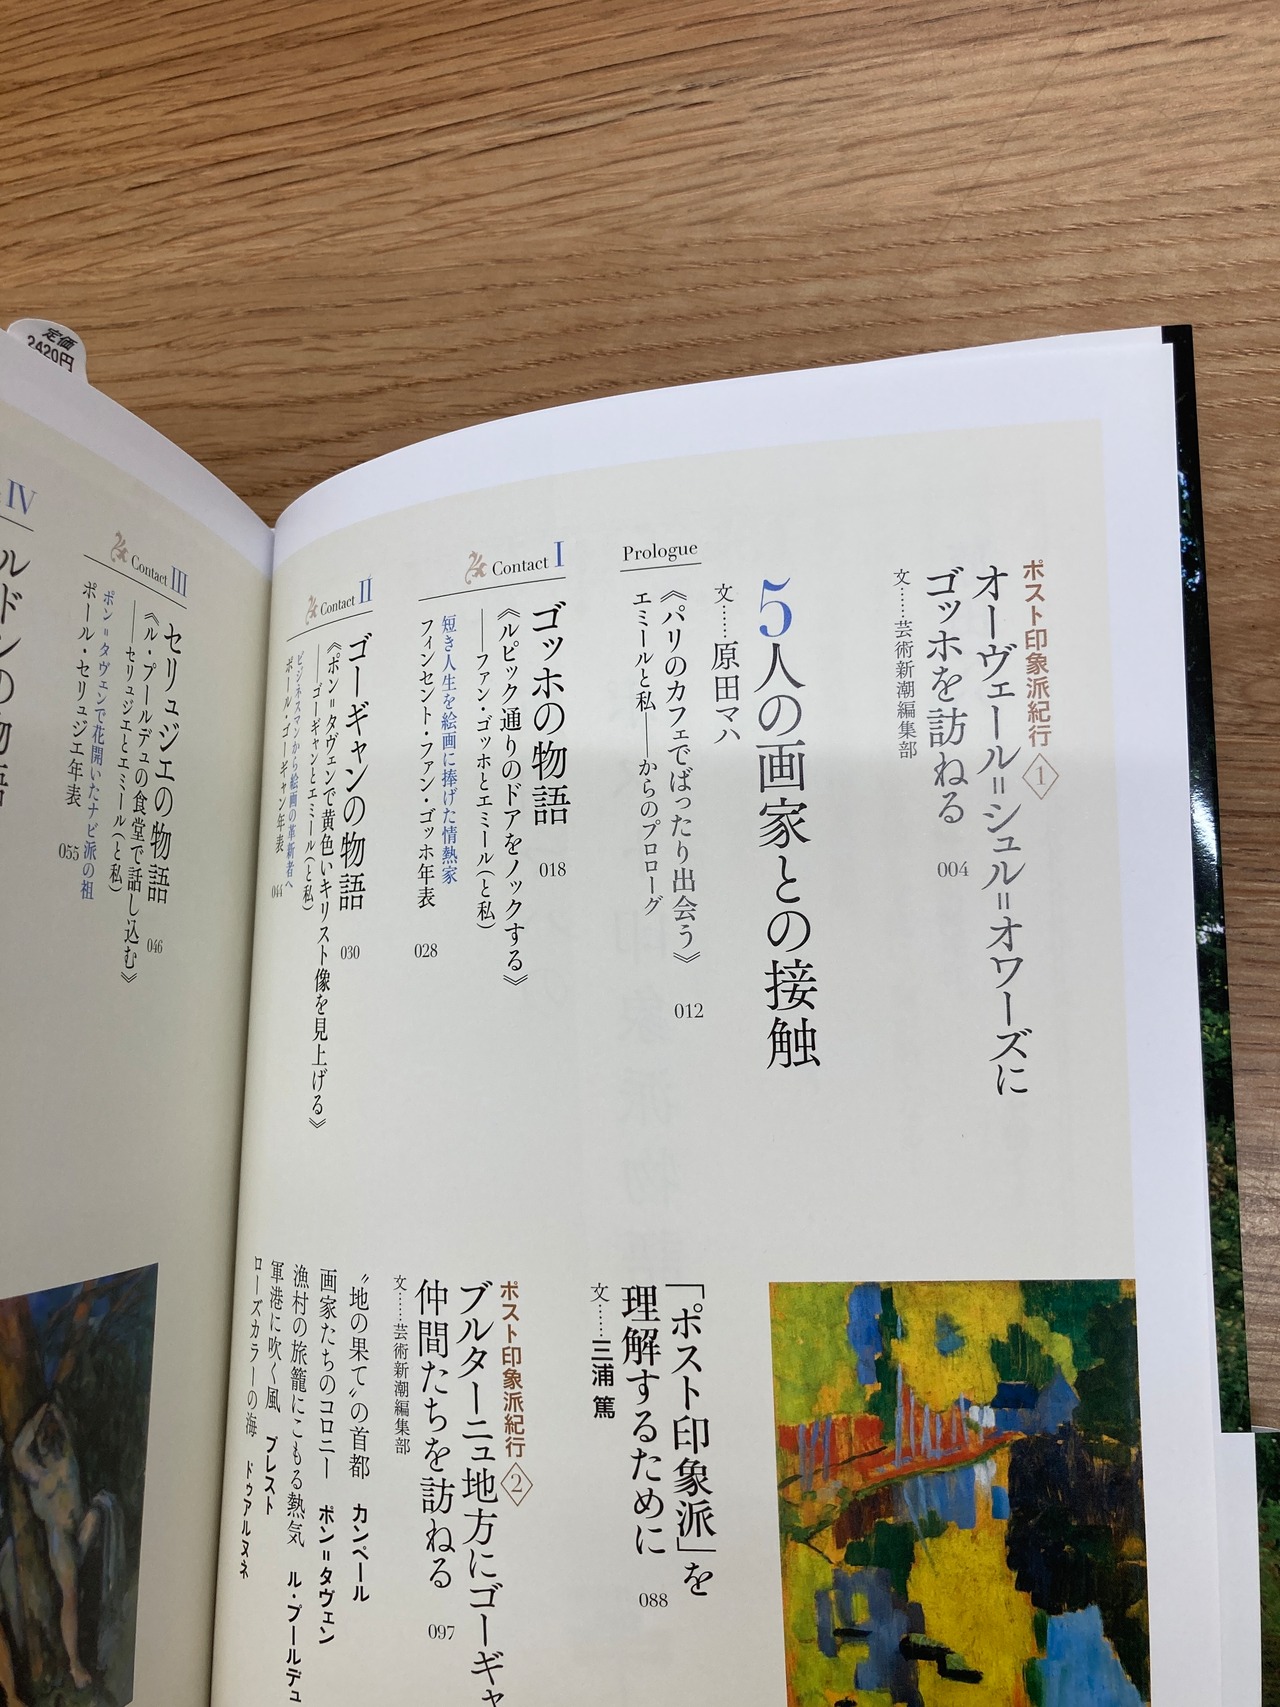 定価
2420円
ポスト印象派紀行 1
オーヴェール=シュル=オワーズに
ゴッホを訪ねる 004
文……芸術新潮編集部
5人の画家との接触
文……原田マハ
Prologue
《パリのカフェでばったり出会う》 012
エミールと私――からのプロローグ
Contact I
ゴッホの物語 018
《ルピック通りのドアをノックする》
――ファン・ゴッホとエミール(と私)
短き人生を絵画に捧げた情熱家
フィンセント・ファン・ゴッホ年表 028
Contact II
ゴーギャンの物語 030
《ポン=タヴェンで黄色いキリスト像を見上げる》
――ゴーギャンとエミール(と私)
ビジネスマンから絵画の革新者へ
ポール・ゴーギャン年表 044
Contact III
セリュジエの物語 046
《ル・プールデュの食堂で話し込む》
――セリュジエとエミール(と私)
ポン=タヴェンで花開いたナビ派の祖
ポール・セリュジエ年表 055
IV
ルドンの物語
「ポスト印象派」を
理解するために 088
文……三浦 篤
ポスト印象派紀行 2
ブルターニュ地方にゴーギャ
仲間たちを訪ねる 097
文……芸術新潮編集部
〝地の果て〟の首都 カンペール
画家たちのコロニー ポン=タヴェン
漁村の旅籠にこもる熱気 ル・プールデュ
軍港に吹く風 ブレスト
ローズカラーの海 ドゥアルヌネ